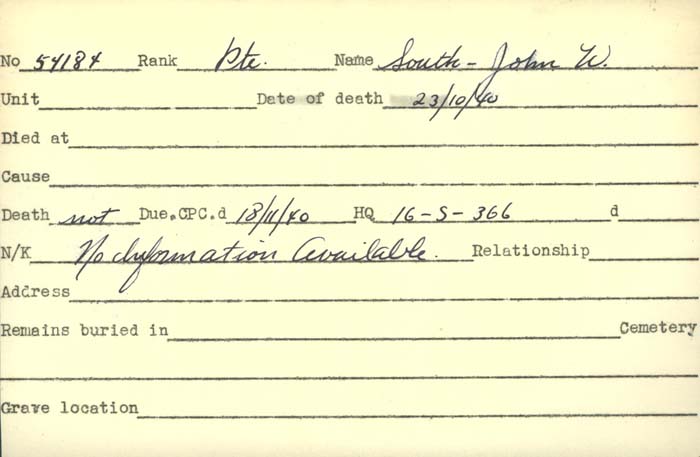 No 54184 Rank Pte. Name South - John W.
Unit Date of death 23/10/40
Died at
Cause
Death not Due.CPC.d 18/11/40 HQ 16-S-366 d
N/K No Information Available. Relationship
Address
Remains buried in Cemetery
Grave location